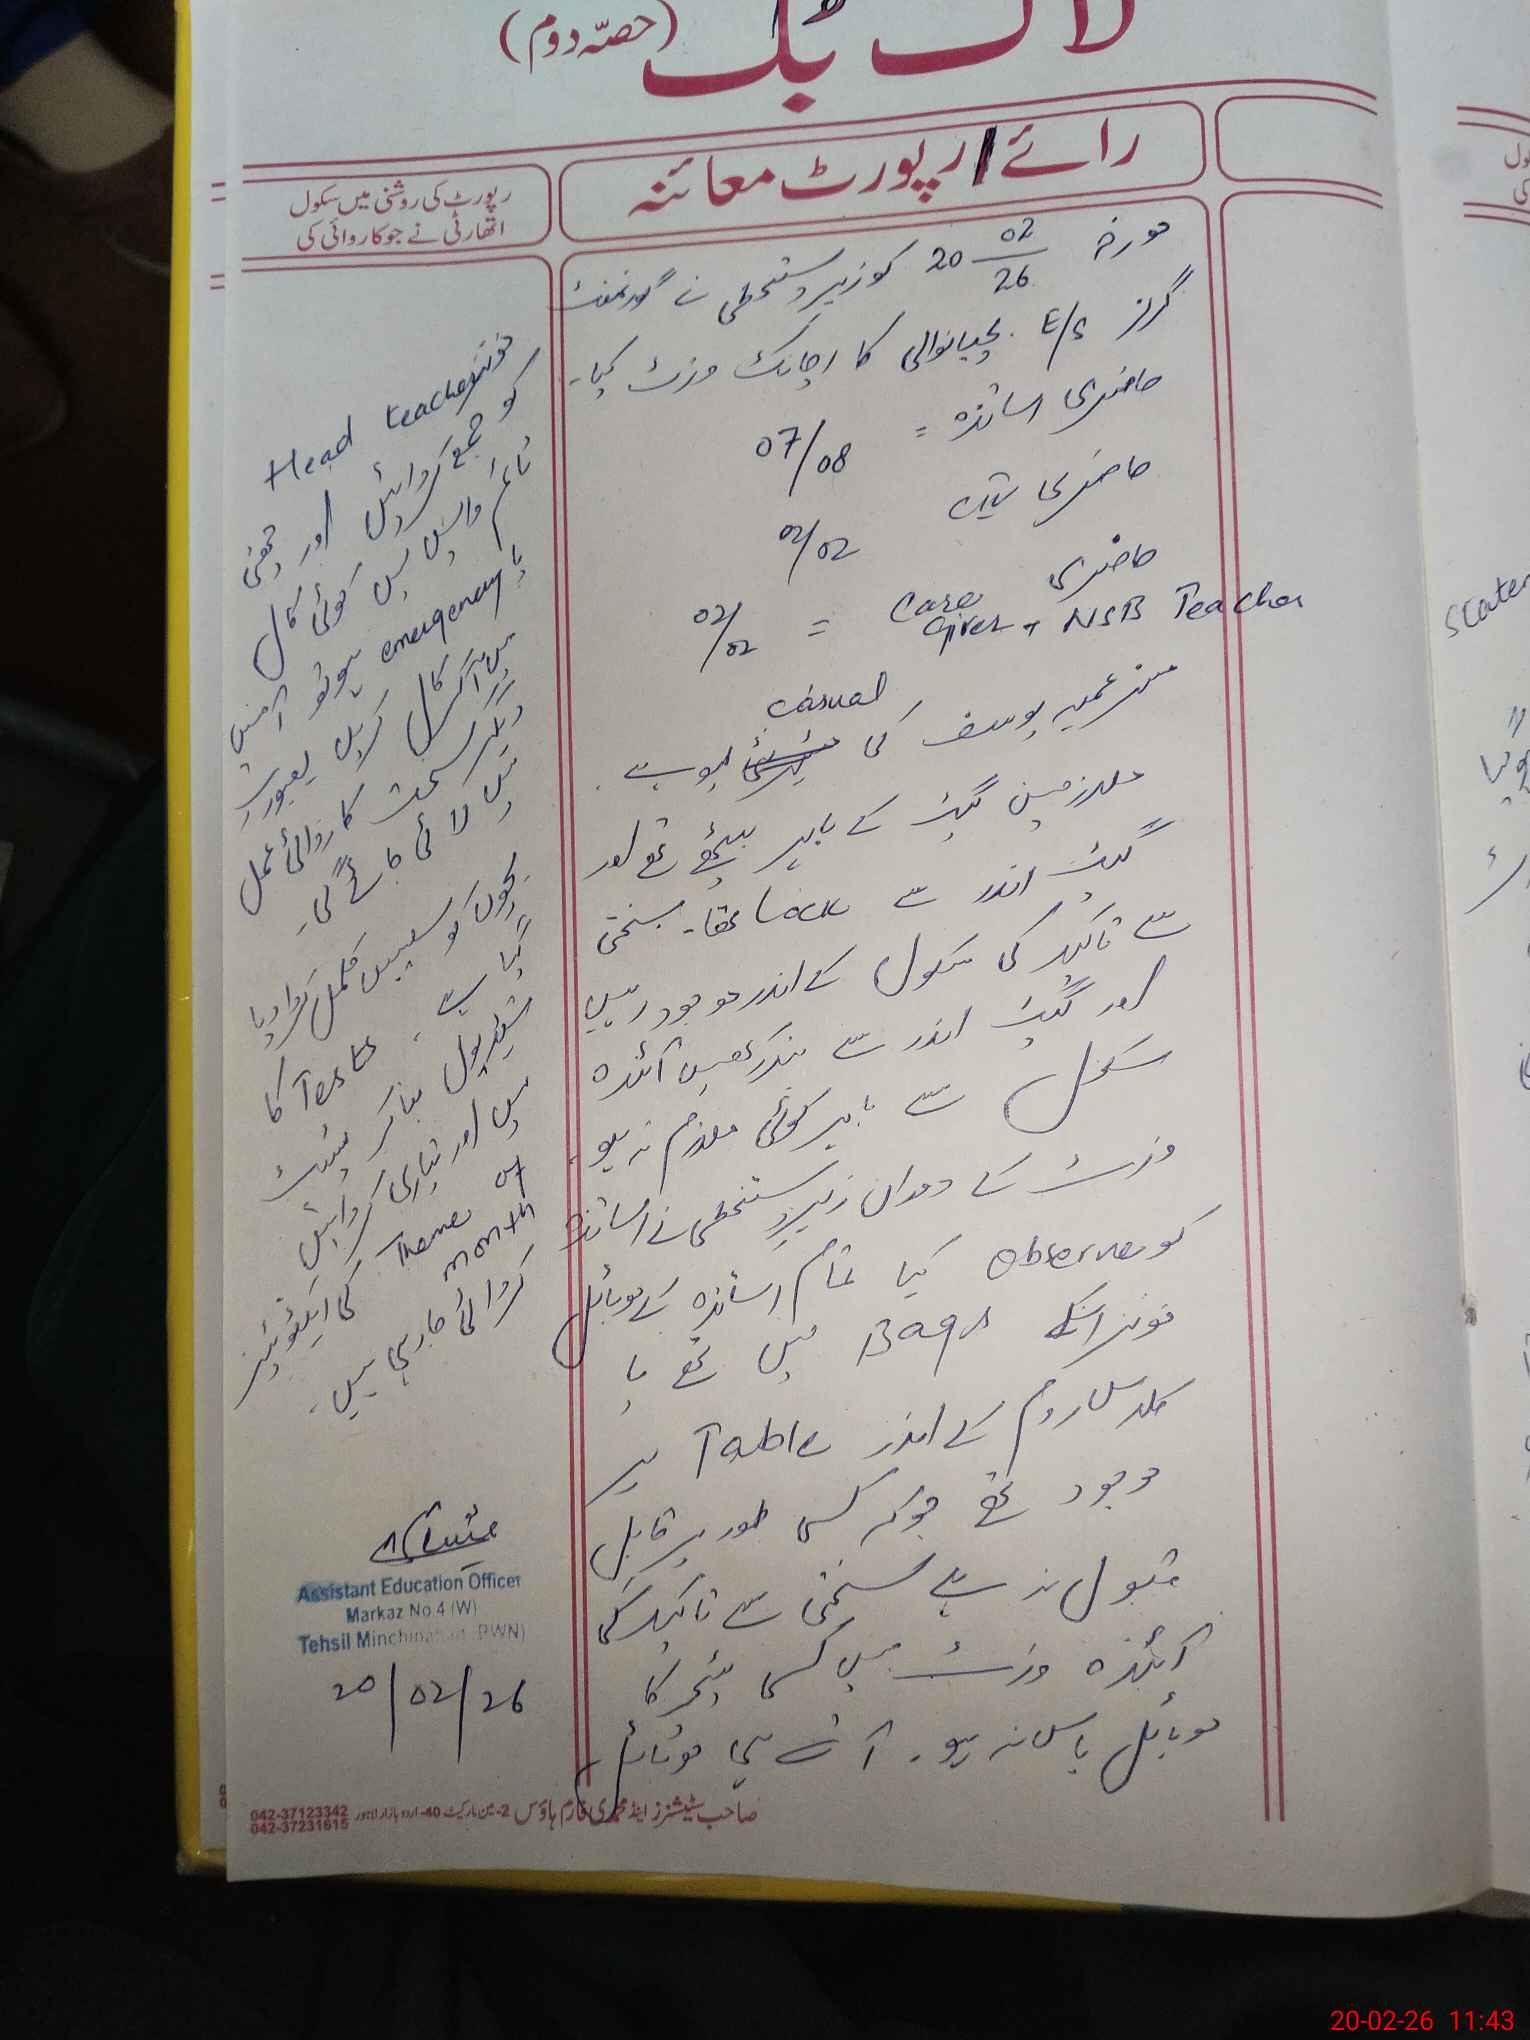 لاگ بک (حصہ دوم)
رائے / رپورٹ معائنہ
مورخہ 20 02/26 کو زیر دستخطی نے گورنمنٹ
گرلز E/S بچیانوالی کا اچانک وزٹ کیا۔
حاضری اساتذہ = 07/08
حاضری 02/02
حاضری Care Giver + NSB Teacher = 02/02
مسز عمیرہ یوسف کی casual لیو ہے۔
ملازمین گیٹ کے باہر بیٹھے تھے اور
گیٹ اندر سے Lock تھا۔ سختی
سے تاکید کی سکول کے اندر موجود رہیں
اور گیٹ اندر سے بند رکھیں آئندہ
سکول سے باہر کوئی ملازم نہ ہو۔
وزٹ کے دوران زیر دستخطی نے اساتذہ
کو observe کیا تمام اساتذہ کے موبائل
فونز انکے Bags میں تھے یا
کلاس روم کے اندر Table پر
موجود تھے جو کہ کسی طور پر قابل
قبول نہ ہے سختی سے تاکید کی
آئندہ وزٹ میں کسی ٹیچر کا
موبائل پاس نہ ہو۔ آتے ہی فونز تمام
رپورٹ کی روشنی میں سکول
اتھارٹی نے جو کاروائی کی
فونز Head teacher
کو جمع کروائیں اور چھٹی
ٹائم واپس لیں کوئی کال
یا emergency ہو تو آفس
میں آ کر کال کریں بصورت
دیگر سخت کاروائی عمل
میں لائی جائے گی۔
بچوں کو سلیبس مکمل کروا دیا
گیا ہے، Tests کا
شیڈیول بنا کر ٹیسٹ
لیں اور تیاری کروائیں
Theme of month کی ایکٹیوٹیز
کروائی جا رہی ہیں۔
Assistant Education Officer
Markaz No.4 (W)
Tehsil Minchinabad (BWN)
20/02/26
صاحب سٹیشنرز اینڈ محمدی فارم ہاؤس 2-مین مارکیٹ 40-اردو بازار لاہور 042-37123342
042-37231615
20-02-26 11:43